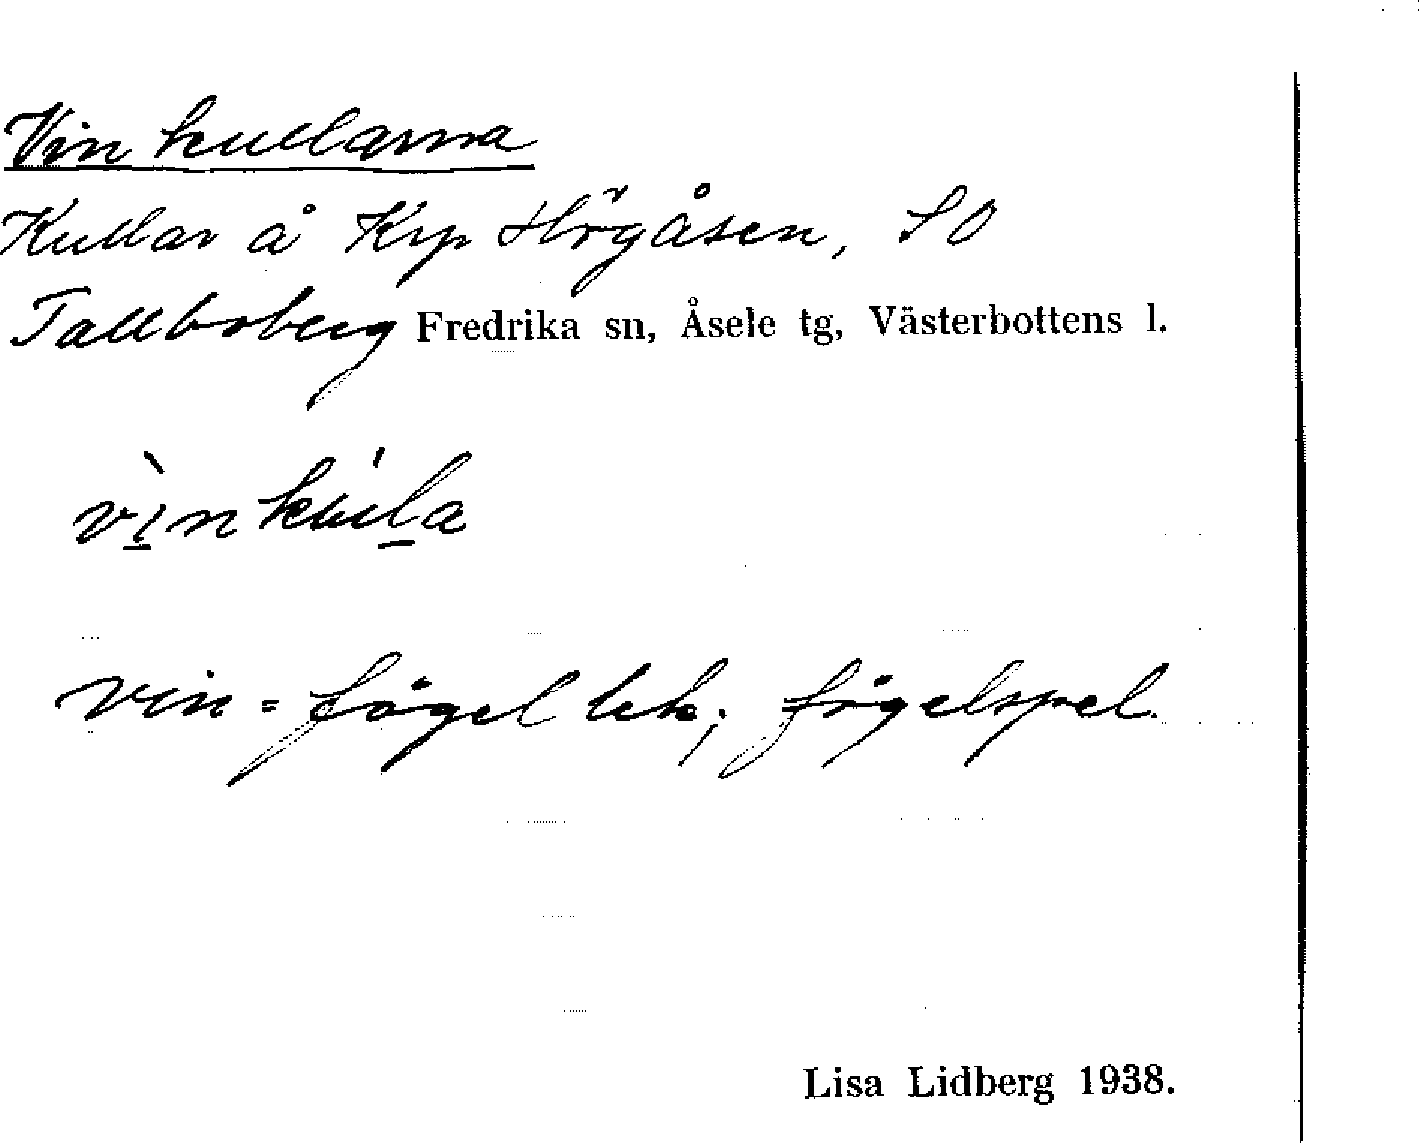 Vinkullarna
Kullar å Krp Högåsen, SO
Tallboberg Fredrika sn, Åsele tg, Västerbottens l.
vìnkúla
vin = fågellek; fågelspel.
Lisa Lidberg 1938.